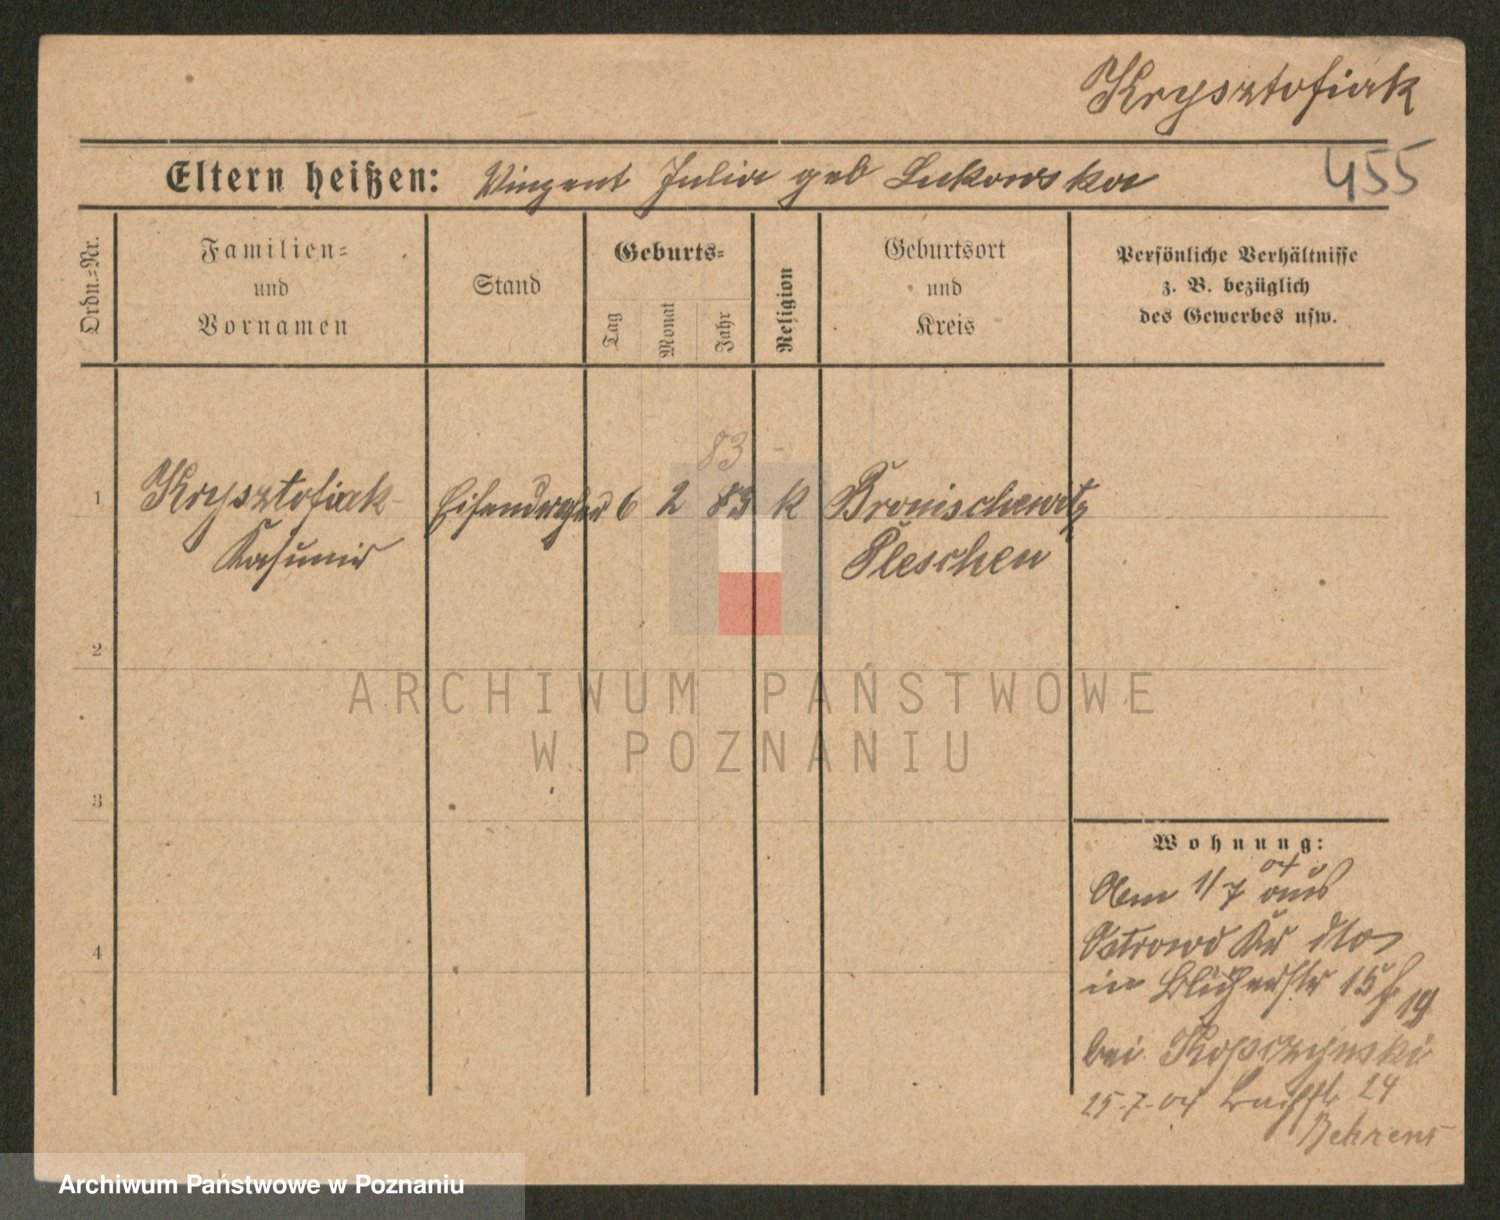 Krysztofiak
Eltern heißen: Vinzent Julia geb Lukowska
455
Ordn.=Nr.
Familien=
und
Vornamen
Stand
Geburts=
Tag
Monat
Jahr
Religion
Geburtsort
und
Kreis
Persönliche Verhältnisse
z. B. bezüglich
des Gewerbes usw.
83
1 Krysztofiak Eisendreher 6 2 83 k Bronischewitz
Kasimir Pleschen
2
3
4
ARCHIWUM PAŃSTWOWE
W POZNANIU
Wohnung:
04
Am 1/7 aus
Ostrowo Kr
in Blücherstr 15 19
bei Kopczynski
25-7-04 24
Behrens
Archiwum Państwowe w Poznaniu